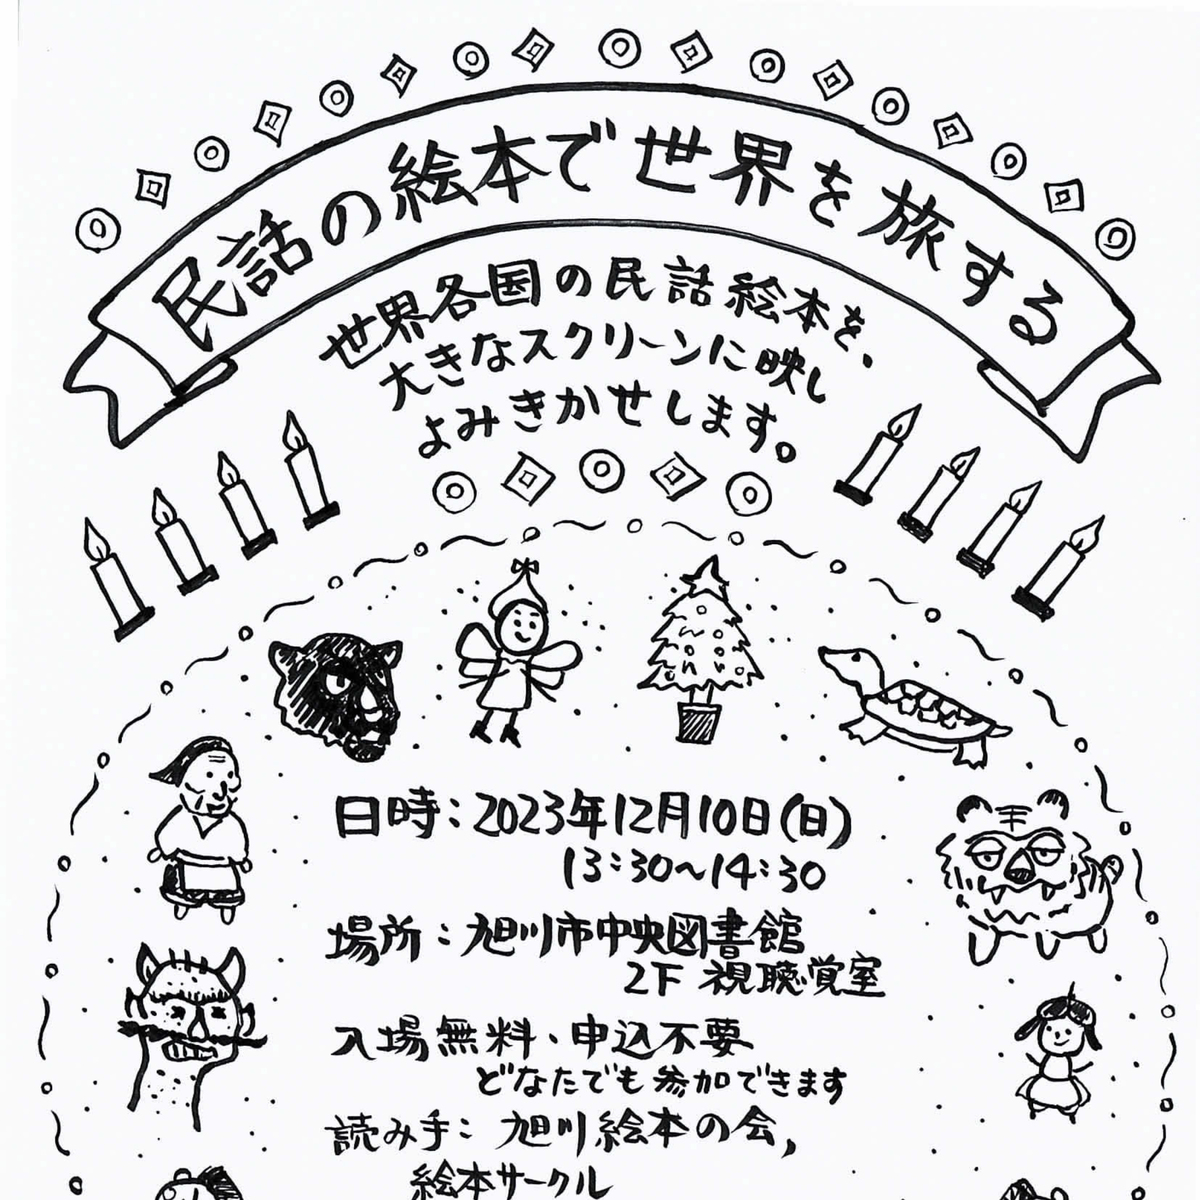 民話の絵本で世界を旅する
世界各国の民話絵本を、
大きなスクリーンに映し
よみきかせします。
日時:2023年12月10日(日)
13:30〜14:30
場所:旭川市中央図書館
2F 視聴覚室
入場無料、申込不要
どなたでも参加できます
読み手:旭川絵本の会,
絵本サークル